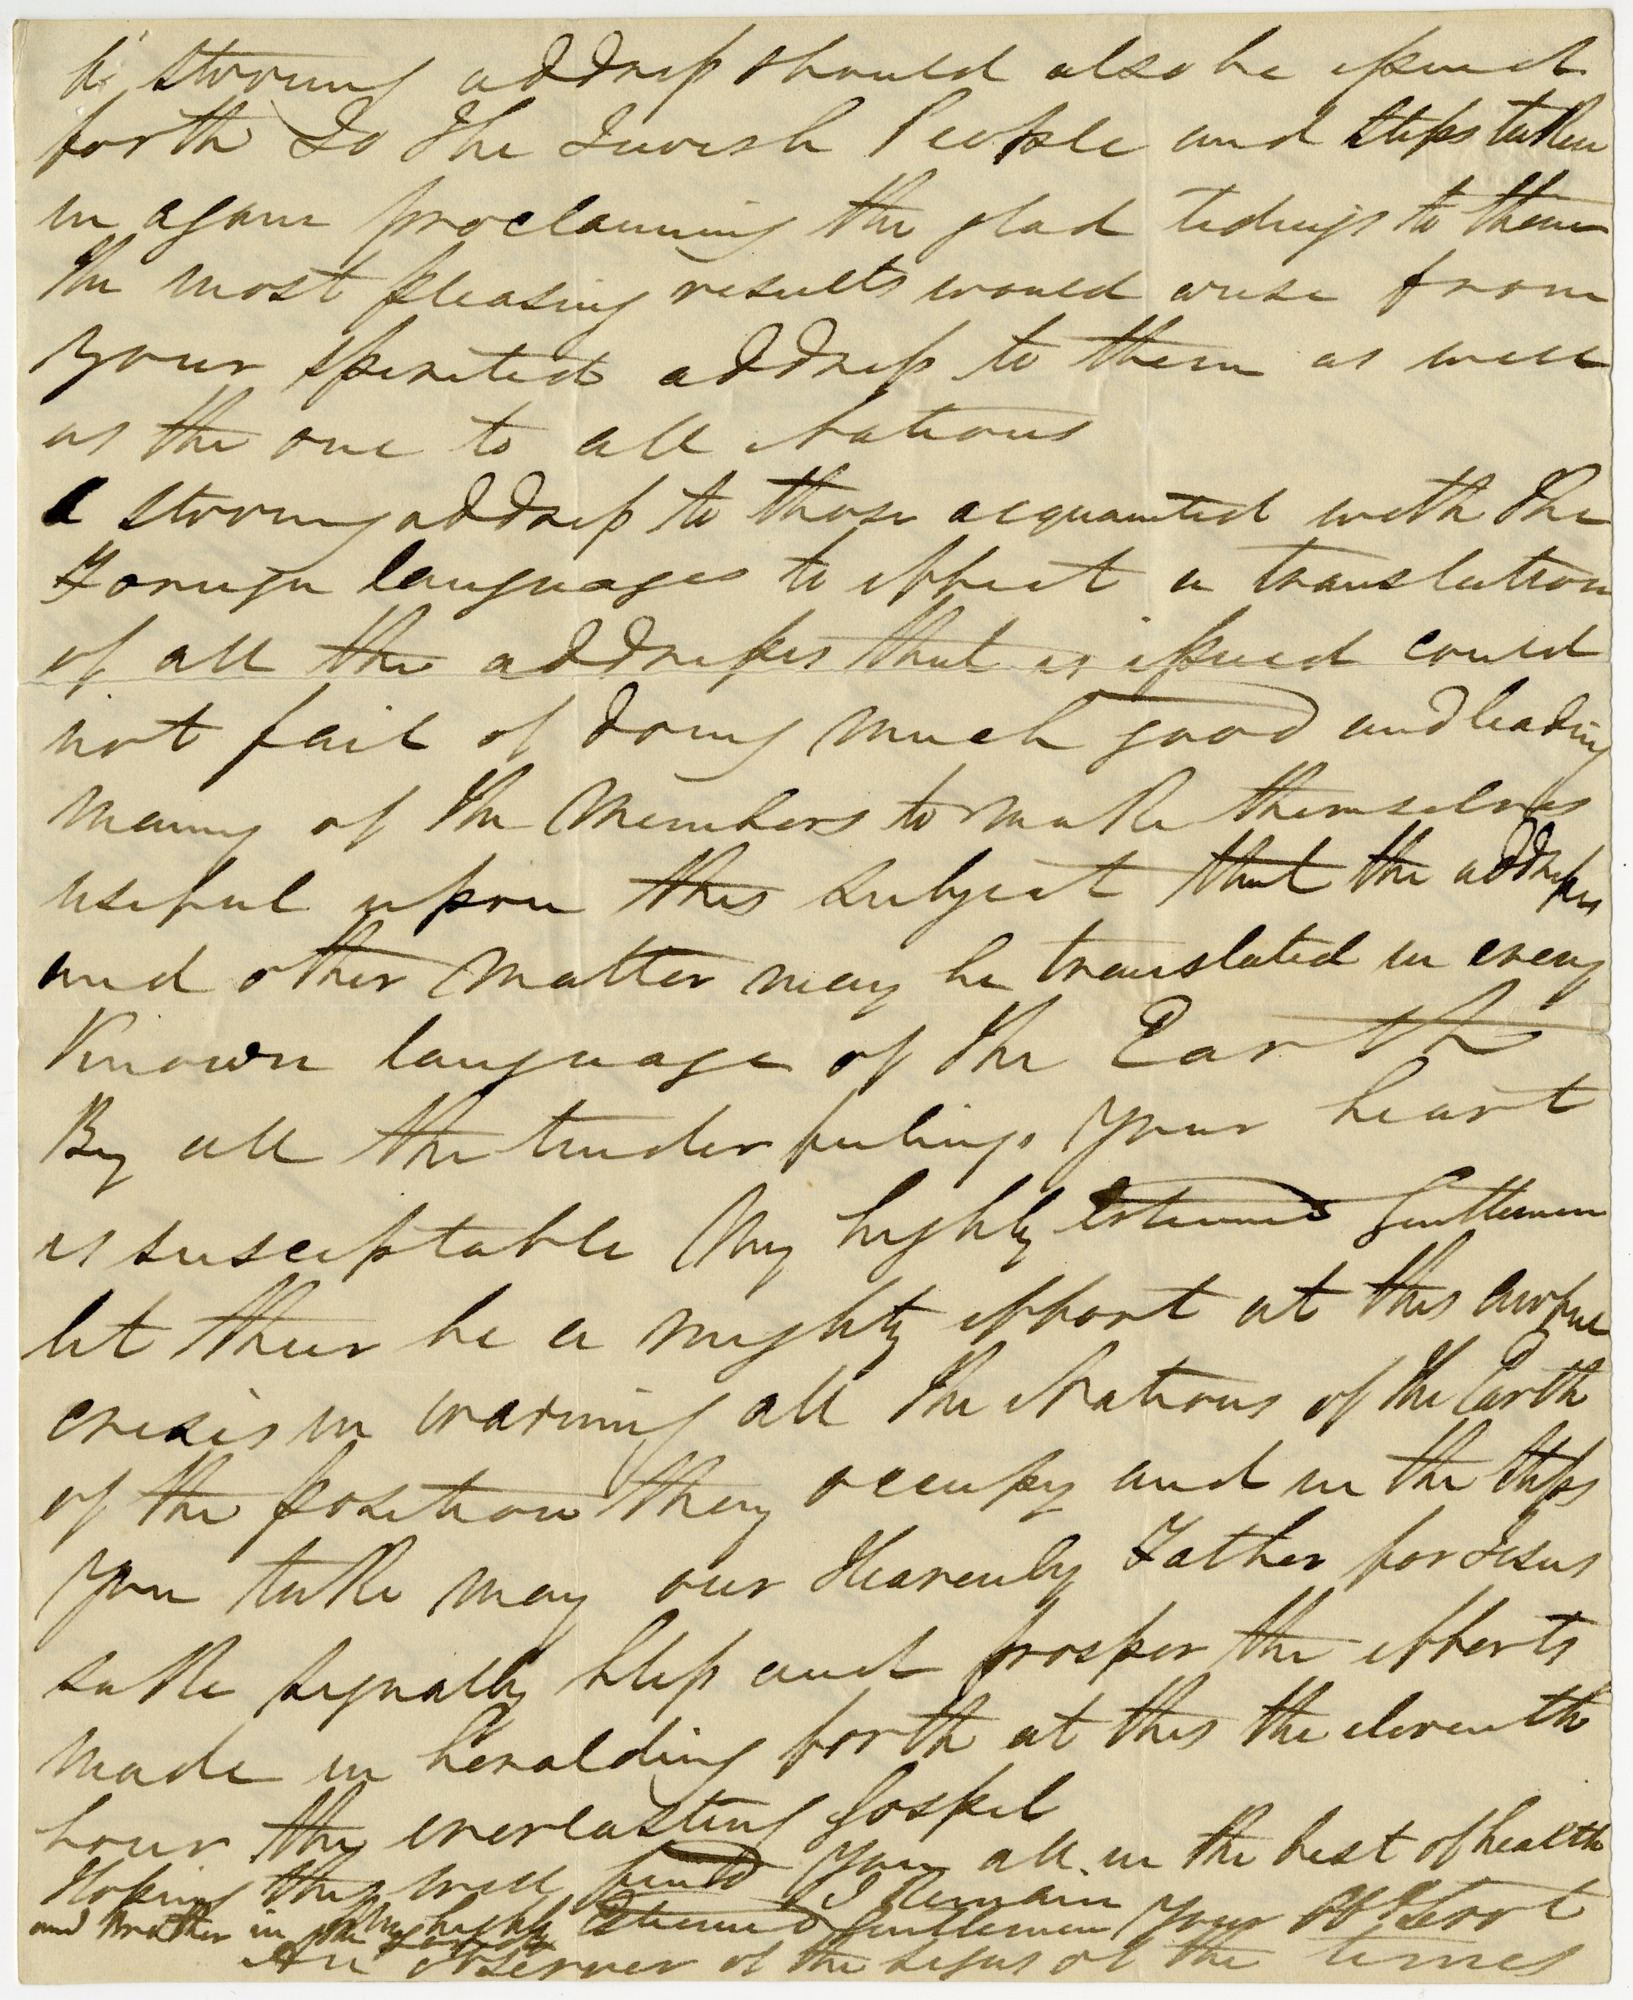 A strong address should also be issued
forth To The Jewish People and steps taken
in again proclaiming the glad tidings to them
the most pleasing results would arise from
your spirited address to them as well
as the one to all Nations
A strong address to those acquainted with the
Foreign languages to effect a translation
of all the addresses that is issued could
not fail of doing much good and leading
many of the Members to make themselves
useful upon this subject that the addresses
and other matter may be translated in every
Known language of the Earth
By all the tender feelings your heart
is susceptable My highly Esteemed Gentlemen
let their be a mighty effort at this awful
crisis in warning all the Nations of the Earth
of the position they occupy and in the steps
you take may our Heavenly Father for Jesus
sake signally help and prosper the efforts
made in heralding forth at this the eleventh
hour the everlasting Gospel
Hoping this will find you all in the best of health
I Remain
My highly Esteemed Gentlemen your Obt Servt
and Brother in the
An observer of the signs of the times